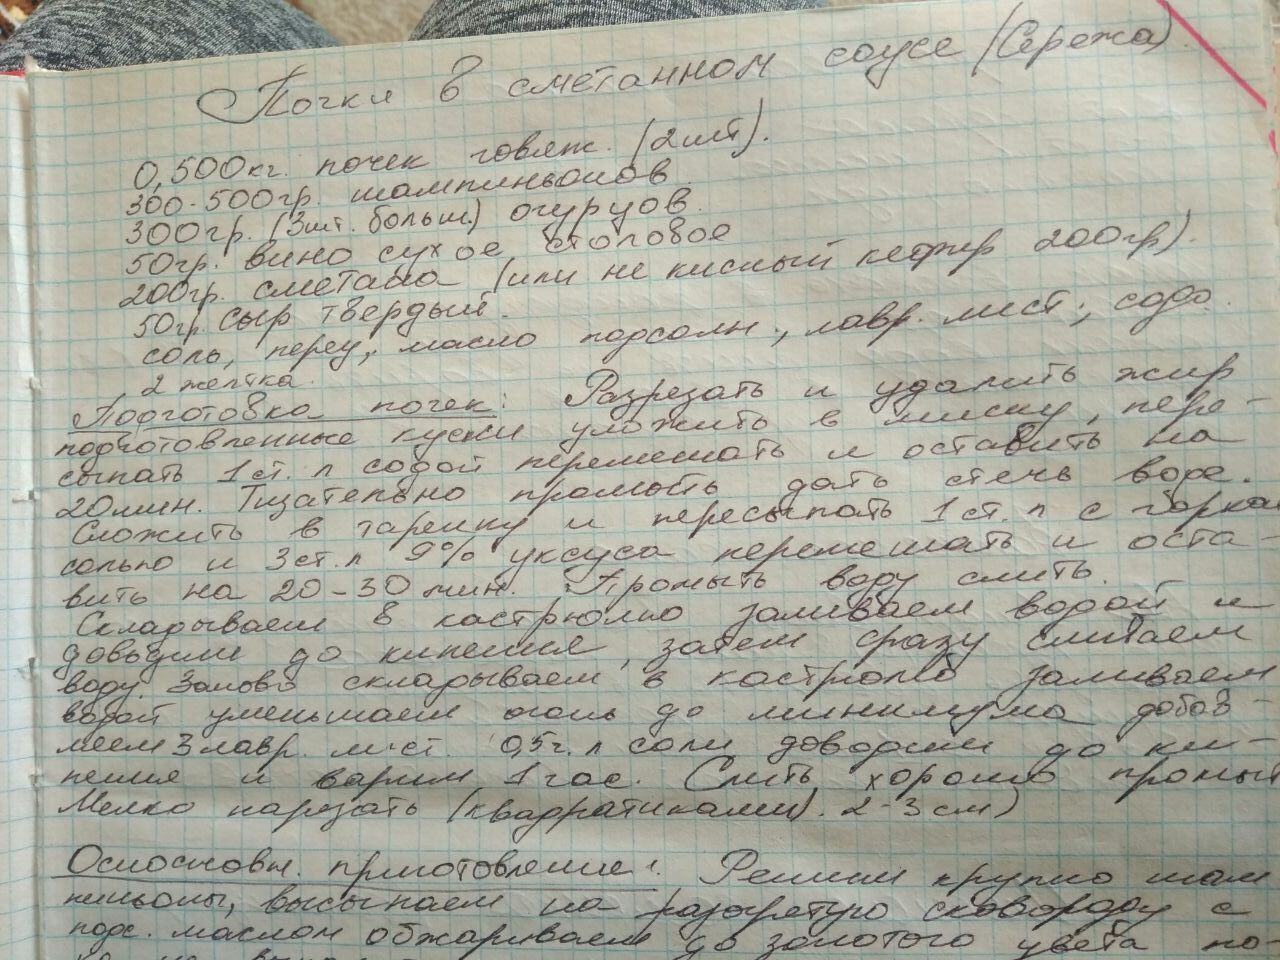 Почки в сметанном соусе (Сережа).
0,500кг. почек говяж. (2шт).
300-500гр. шампиньонов
300гр. (3шт. больш.) огурцов.
50гр. вино сухое столовое
200гр. сметана (или не кислый кефир 200гр).
50гр. сыр твердый.
соль, перец, масло подсолн., лавр. лист; сода.
2 желтка.
Подготовка почек: Разрезать и удалить жир
подготовленные куски уложить в миску, пере-
сыпать 1ст. л содой перемешать и оставить на
20мин. Тщательно промыть дать стечь воде.
Сложить в тарелку и пересыпать 1ст. л с горкой
солью и 3ст. л 9% уксуса перемешать и оста-
вить на 20-30 мин. Промыть воду слить.
Складываем в кастрюлю заливаем водой и
доводим до кипения, затем сразу сливаем
воду. Заново складываем в кастрюлю заливаем
водой уменьшаем огонь до минимума добав-
ляем 3 лавр. лист. 0,5г. л соли доводим до ки-
пения и варим 1час. Слить хорошо промыть
Мелко нарезать (квадратиками). 2-3см)
приготовление: Режим крупно шам
пиньоны, высыпаем на разогретую сковороду с
подс. маслом обжариваем до золотого цвета по-